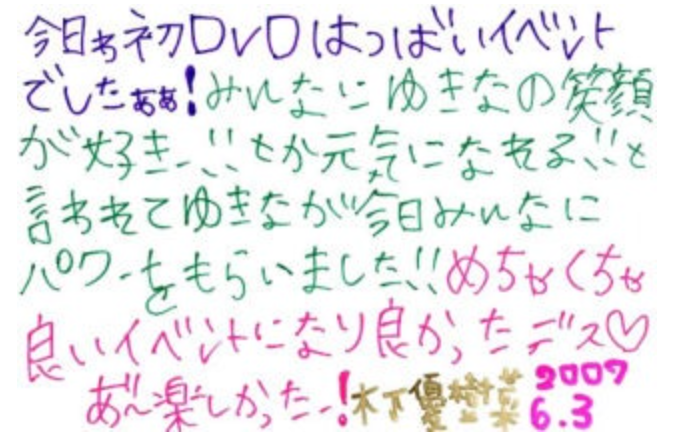 今日ゎ初DVDはっばいイベント
でしたぁぁ!みんなにゆきなの笑顔
が好きー!!とか元気になれる!!と
言われてゆきなが今日みんなに
パワーをもらいました!!めちゃくちゃ
良いイベントになり良かったデス♡
あ゛〜楽しかったー!木下優樹菜 2007 6.3